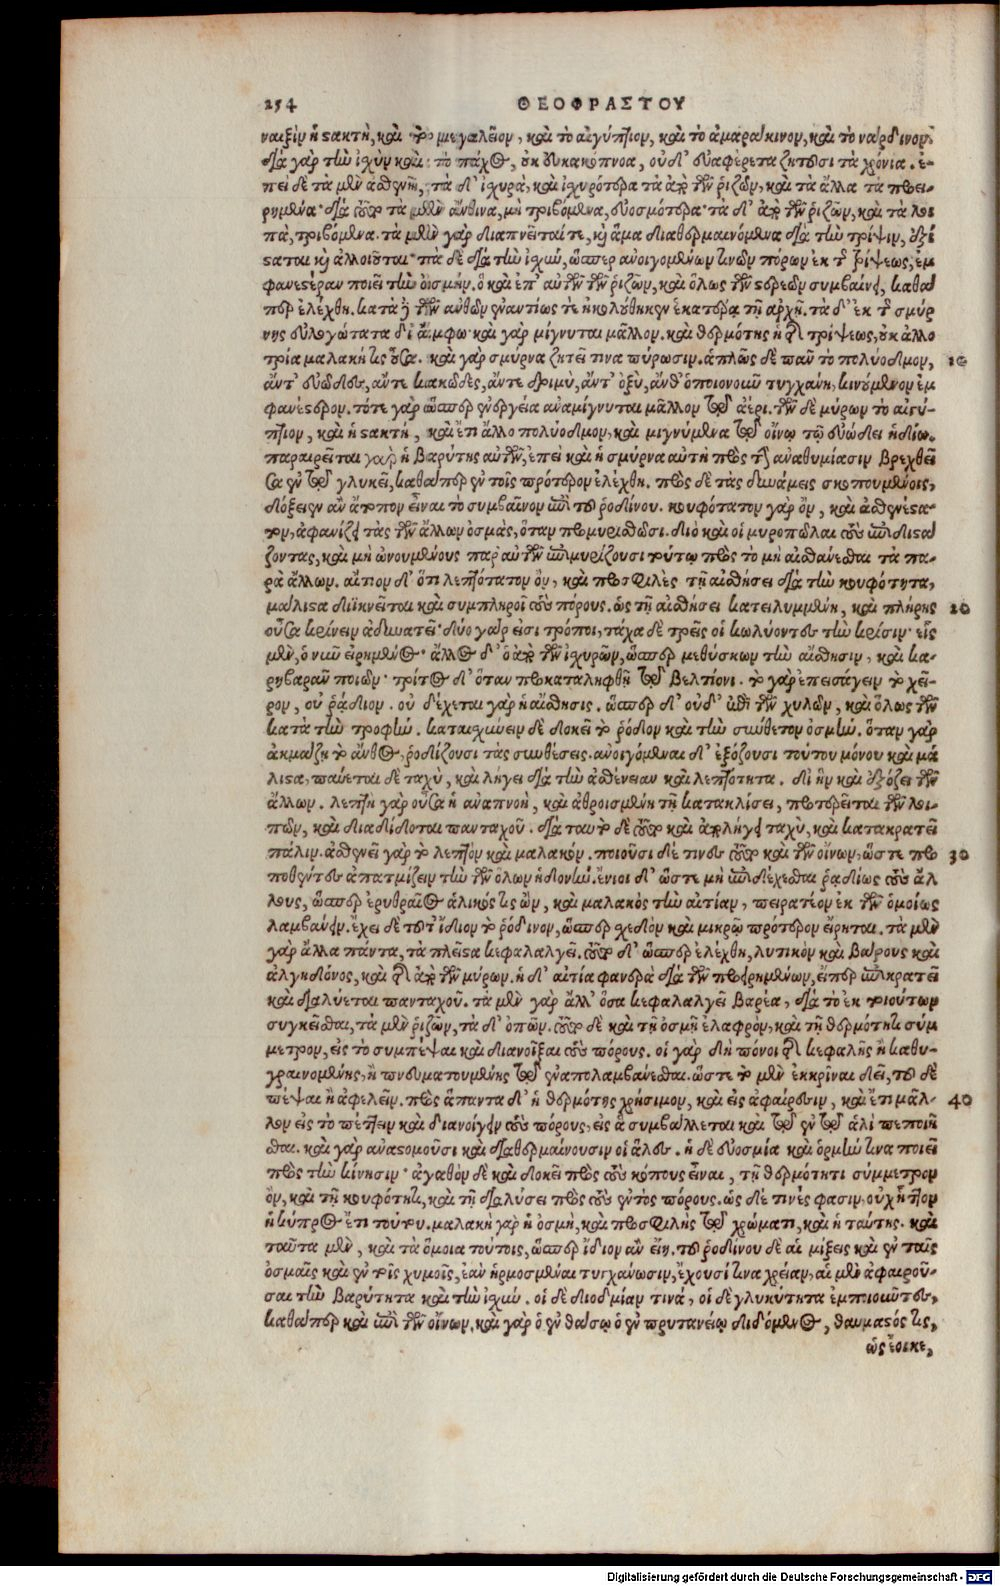 254 ΘΕΟΦΡΑΣΤΟΥ
ναιξὶν ἡ στακτὴ, καὶ τὸ μεγαλεῖον, καὶ τὸ αἰγύπτιον, καὶ τὸ ἀμαράκινον, καὶ τὸ νάρδινον.
διὰ γὰρ τὴν ἰχὺν καὶ τὸ πάχος, οὐκ οὖσα κάπνοα, οὐδ' εὐαφέρετα ζητοῦσι τὰ χρόνια. ἐ-
πεὶ δὲ τὰ μὲν ἀσθενῆ, τὰ δ' ἰχυρὰ, καὶ ἰχυρότερα τὰ ἀπὸ τῶν ῥιζῶν, καὶ τὰ ἄλλα τὰ προει-
ρημένα· διὰ τοῦτο τὰ μὲν ἄνθινα, μὴ τριβόμενα, εὐοσμότερα· τὰ δ' ἀπὸ τῶν ῥιζῶν, καὶ τὰ λοι
πὰ, τριβόμενα. τὰ μὲν γὰρ διαπνεῖταί τε, καὶ ἅμα διαθερμαινόμενα διὰ τὴν τρίψιν, ὀξύ
σαται καὶ ἀλλοιοῦται· τὰ δὲ διὰ τὴν ἰχὺν, ὥσπερ ἀνοιγομένων τινῶν πόρων ἐκ τῆς τρίψεως, ἐμ
φανεστέραν ποιεῖ τὴν ὀσμήν. ὃ καὶ ἐπ' αὐτῶν τῶν ῥιζῶν, καὶ ὅλως τῶν στερεῶν συμβαίνει, καθά
περ ἐλέχθη. κατὰ δὲ τῶν ἀνθῶν ἐναντίως τε ἠκολούθηκεν ἑκατέρᾳ τῇ ἀρχῇ. τὰ δ' ἐκ τῆς σμύρ
νης εὐλογώτατα δι' ἄμφω· καὶ γὰρ μίγνυται μᾶλλον. καὶ θερμότης ἡ τῆς τρίψεως, οὐκ ἀλλο
τρία μαλακή τις οὖσα. καὶ γὰρ σμύρνα ζητεῖ τινα πύρωσιν. ἁπλῶς δὲ πᾶν τὸ πολύοσμον, 10
ἄντ' εὐῶδες, ἄντε κακῶδες, ἄντε δριμὺ, ἄντ' ὀξὺ, ἄνθ' ὁποιονοῦν τυγχάνῃ, κινούμενον ἐμ
φανέστερον. τότε γὰρ ὥσπερ ἐνεργείᾳ ἀναμίγνυται μᾶλλον τῷ ἀέρι. τῶν δὲ μύρων τὸ αἰγύ-
πτιον, καὶ ἡ στακτὴ, καὶ ἔτι ἄλλο πολύοδμον, καὶ μιγνύμενα τῷ οἴνῳ τῷ εὐώδει ἡδίω.
παραιρεῖται γὰρ ἡ βαρύτης αὐτῶν, ἐπεὶ καὶ ἡ σμύρνα αὐτὴ πρὸς τὴν ἀναθυμίασιν βρεχθεῖ
σα ἐν τῷ γλυκεῖ, καθάπερ ἐν τοῖς πρότερον ἐλέχθη. πρὸς δὲ τὰς δυνάμεις σκοπουμένοις,
δόξειεν ἂν ἄτοπον εἶναι τὸ συμβαῖνον ἐπὶ τοῦ ῥοδίνου. κουφότατον γὰρ ὂν, καὶ ἀσθενέστα-
τον, ἀφανίζει τὰς τῶν ἄλλων ὀσμὰς, ὅταν προμυρισθῶσι. διὸ καὶ οἱ μυροπῶλαι τοὺς ἐπιδιστά
ζοντας, καὶ μὴ ὠνουμένους παρ' αὐτῶν ἐπιμυρίζουσι τούτῳ πρὸς τὸ μὴ αἰσθάνεσθαι τὰ πα-
ρὰ ἄλλων. αἴτιον δ' ὅτι λεπτότατον ὂν, καὶ προσφιλὲς τῇ αἰσθήσει διὰ τὴν κουφότητα,
μάλιστα διϊκνεῖται καὶ συμπληροῖ τοὺς πόρους. ὡς τῇ αἰσθήσει κατειλυμμένη, καὶ πλήρης 20
οὖσα κρίνειν ἀδυνατεῖ· δύο γάρ εἰσι τρόποι, τάχα δὲ τρεῖς οἱ κωλύοντες τὴν κρίσιν· εἷς
μὲν, ὁ νῦν εἰρημένος· ἄλλος δ' ὁ ἀπὸ τῶν ἰχυρῶν, ὥσπερ μεθύσκων τὴν αἴσθησιν, καὶ κα-
ρηβαρᾶν ποιῶν· τρίτος δ' ὅταν προκαταληφθῇ τῷ βελτίονι. τὸ γὰρ ἐπεισάγειν τὸ χεῖ-
ρον, οὐ ῥᾴδιον. οὐ δέχεται γὰρ ἡ αἴσθησις. ὥσπερ δ' οὐδ' ἐπὶ τῶν χυλῶν, καὶ ὅλως τῶν
κατὰ τὴν τροφήν. καταιχύνειν δὲ δοκεῖ τὸ ῥόδιον καὶ τὴν σύνθετον ὀσμήν. ὅταν γὰρ
ἀκμάζῃ τὸ ἄνθος, ῥοδίζουσι τὰς συνθέσεις. ἀνοιγόμεναι δ' ἐξόζουσι τούτου μόνου καὶ μά
λιστα, παύεται δὲ ταχὺ, καὶ λήγει διὰ τὴν ἀσθένειαν καὶ λεπτότητα. δι' ἣν καὶ ἐξόζει τῶν
ἄλλων. λεπτὴ γὰρ οὖσα ἡ ἀναπνοὴ, καὶ ἀθροισμένη τῇ κατακλίσει, προτερεῖται τῶν λοι-
πῶν, καὶ διαδίδοται πανταχοῦ. διὰ ταυτὸ δὲ τοῦτο καὶ ἀπολήγει ταχὺ, καὶ κατακρατεῖ
πάλιν. ἀσθενεῖ γὰρ τὸ λεπτὸν καὶ μαλακόν. ποιοῦσι δέ τινες τοῦτο καὶ τῶν οἴνων, ὥστε προ 30
ποθέντες ἀπατμίζειν τὴν τῶν ὅλων ἡδονήν. ἔνιοι δ' ὥστε μὴ ἐπιδέχεσθαι ῥᾳδίως τοὺς ἄλ
λους, ὥσπερ ἐρυθραῖος ἁλικός τις ὢν, καὶ μαλακὸς τὴν αἰτίαν, πειρατέον ἐκ τῶν ὁμοίως
λαμβάνειν. ἔχει δέ τι ἴδιον τὸ ῥόδινον, ὥσπερ χεδὸν καὶ μικρῷ πρότερον εἴρηται. τὰ μὲν
γὰρ ἄλλα πάντα, τὰ πλεῖστα κεφαλαλγεῖ. τοῦτο δ' ὥσπερ ἐλέχθη, λυτικὸν καὶ βάρους καὶ
ἀλγηδόνος, καὶ τῆς ἀπὸ τῶν μύρων. ἡ δ' αἰτία φανερὰ διὰ τῶν προειρημένων, εἴπερ ἐπικρατεῖ
καὶ διαλύεται πανταχοῦ. τὰ μὲν γὰρ ἄλλ' ὅσα κεφαλαλγεῖ βαρέα, διὰ τὸ ἐκ τοιούτων
συγκεῖσθαι, τὰ μὲν ῥιζῶν, τὰ δ' ὀπῶν. τοῦτο δὲ καὶ τῇ ὀσμῇ ἐλαφρὸν, καὶ τῇ θερμότητι σύμ
μετρον, εἰς τὸ συμπέψαι καὶ διανοῖξαι τοὺς πόρους. οἱ γὰρ δὴ πόνοι τῆς κεφαλῆς ἢ καθυ-
γραινομένης, ἢ πνευματουμένης τῷ ἐναπολαμβάνεσθαι. ὥστε τὸ μὲν ἐκκρῖναι δεῖ, τὸ δὲ
πέψαι ἢ ἀφελεῖν. πρὸς ἅπαντα δ' ἡ θερμότης χρήσιμον, καὶ εἰς ἀφαίρεσιν, καὶ ἔτι μᾶλ- 40
λον εἰς τὸ πέττειν καὶ διανοίγειν τοὺς πόρους, εἰς ἃ συμβάλλεται καὶ τῷ ἐν τῷ ἁλὶ πεποιῆ
σθαι. καὶ γὰρ ἀναστομοῦσι καὶ διαθερμαίνουσιν οἱ ἅλες. ἡ δὲ εὐοσμία καὶ ὁρμήν τινα ποιεῖ
πρὸς τὴν κίνησιν· ἀγαθὸν δὲ καὶ δοκεῖ πρὸς τοὺς κόπους εἶναι, τῇ θερμότητι σύμμετρον
ὂν, καὶ τῇ κουφότητι, καὶ τῇ διαλύσει πρὸς τοὺς ἐντὸς πόρους. ὡς δέ τινές φασιν, οὐχ ἧττον
ἡ κύπρος ἔτι τούτου. μαλακὴ γὰρ ἡ ὀσμὴ, καὶ προσφιλὴς τῷ χρώματι, καὶ ἡ ταύτης. καὶ
ταῦτα μὲν, καὶ τὰ ὅμοια τούτοις, ὥσπερ ἴδιον ἂν εἴη. τοῦ ῥοδίνου δὲ αἱ μίξεις καὶ ἐν ταῖς
ὀσμαῖς καὶ ἐν τοῖς χυμοῖς, ἐὰν ἡρμοσμέναι τυγχάνωσιν, ἔχουσί τινα χρείαν, αἱ μὲν ἀφαιροῦ-
σαι τὴν βαρύτητα καὶ τὴν ἰχύν. οἱ δὲ διοδμίαν τινά, οἱ δὲ γλυκύτητα ἐμποιοῦντες,
καθάπερ καὶ ἐπὶ τῶν οἴνων. καὶ γὰρ ὁ ἐν θάσῳ ὁ ἐν πρυτανείῳ διδόμενος, θαυμαστός τις,
ὡς ἔοικε,
Digitalisierung gefördert durch die Deutsche Forschungsgemeinschaft - DFG